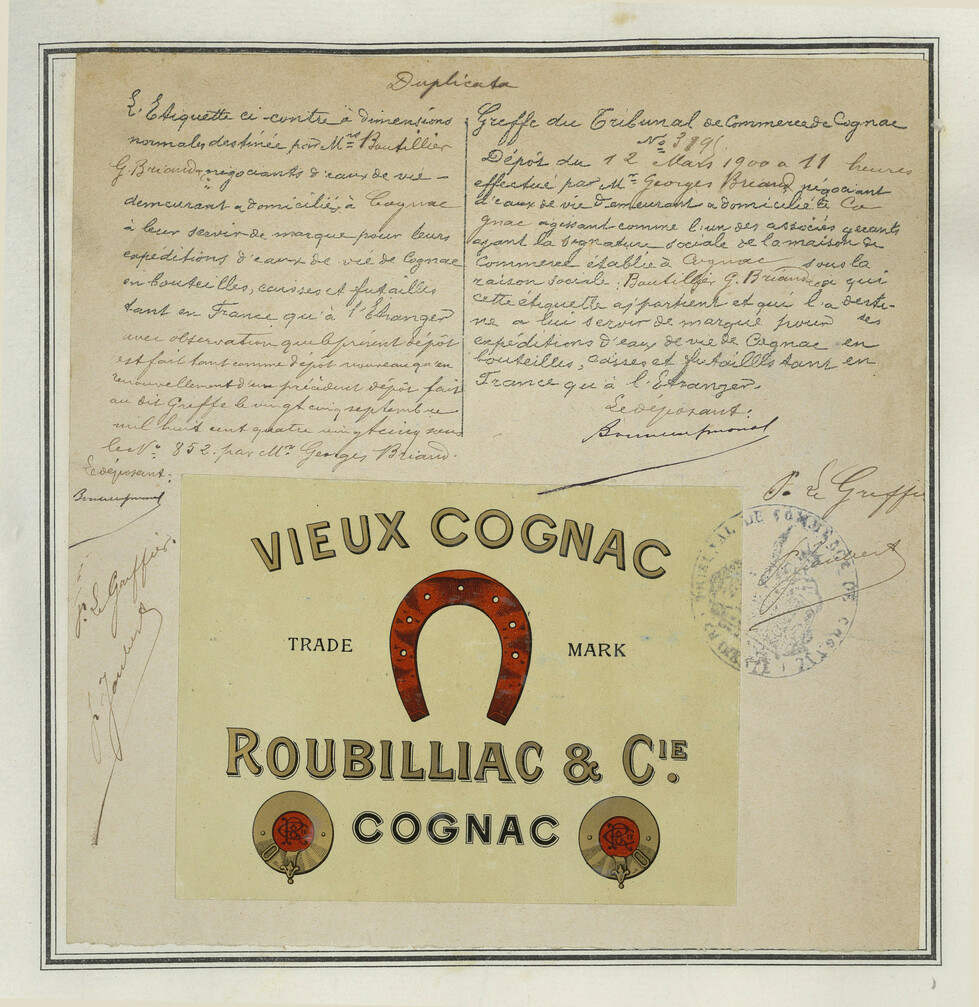 Duplicata
L'Etiquette ci-contre à dimensions
normales destinée par Mrs Boutillier
G. Briand négociants d'eaux de vie
demeurant & domiciliés à Cognac
à leur servir de marque pour leurs
expéditions d'eaux de vie de Cognac
en bouteilles, caisses et futailles
tant en France qu'à l'Etranger
avec observation que le présent dépôt
est fait tant comme dépôt nouveau qu'en
renouvellement d'un précédent dépôt fait
au dit Greffe le vingt cinq septembre
mil huit cent quatre vingt cinq sous
le No 852. par Mr Georges Briand.
Le déposant:
Greffe du Tribunal de Commerce de Cognac
Dépôt du 12 Mars 1900 a 11 heures
effectué par Mr Georges Briand négociant
d'eaux de vie demeurant & domicilié à Co
gnac agissant comme l'un des associés gérants
ayant la signature sociale de la maison de
Commerce établie à Cognac sous la
raison sociale: Boutillier G. Briand & Ce a qui
cette étiquette appartient et qui l'a desti-
né a lui servir de marque pour ses
expéditions d'eaux de vie de Cognac en
bouteilles, caisses et futailles tant en
France qu'à l'Etranger.
Le déposant:
Pr. Le Greffier
Pr. Le Greffier
TRIBUNAL DE COMMERCE DE COGNAC
VIEUX COGNAC
TRADE MARK
ROUBILLIAC & CIE.
COGNAC